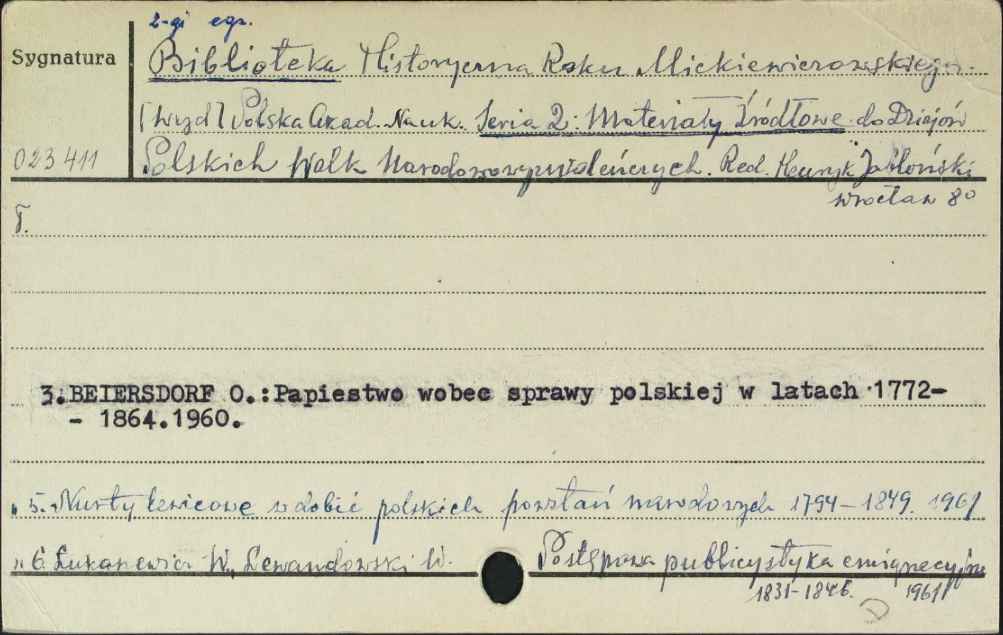 2-gi egz.
Sygnatura
Biblioteka Historyczna Roku Mickiewiczowskiego.
[Wyd] Polska Akad. Nauk. Seria 2: Materiały Źródłowe do Dziejów
023411 Polskich Walk Narodowowyzwoleńczych. Red. Henryk Jabłoński
Wrocław 8°
T.
3.BEIERSDORF O.:Papiestwo wobec sprawy polskiej w latach 1772-
- 1864.1960.
" 5. Nurty lewicowe w dobie polskich powstań narodowych 1794-1849. 1961
" 6. Łukaszewicz W., Lewandowski W. Postępowa publicystyka emigracyjna
1831-1846. 1961